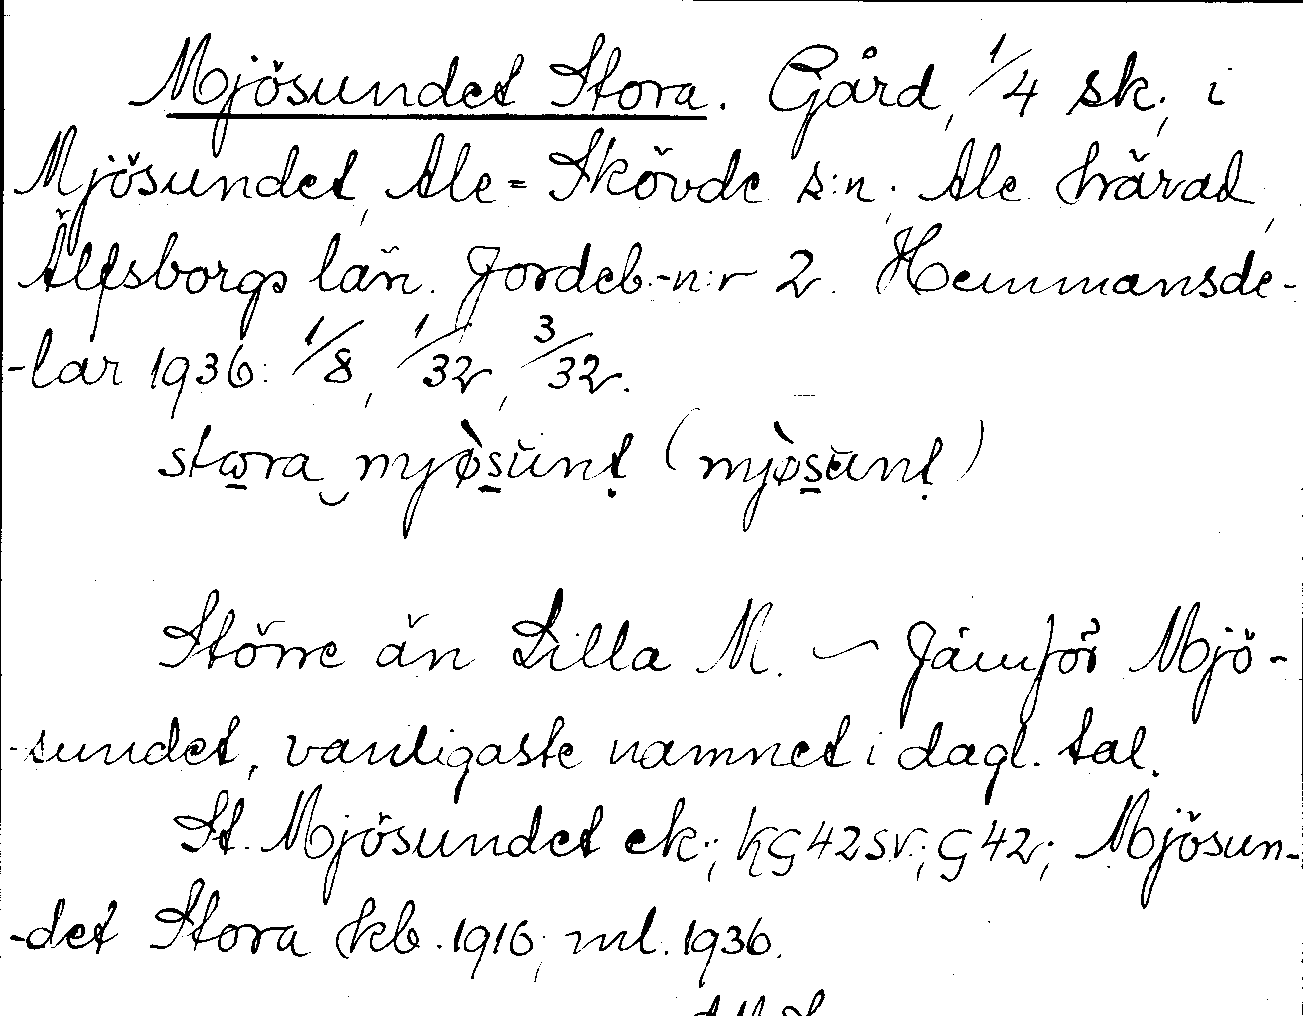 Mjösundet Stora. Gård, 1/4 sk., i
Mjösundet, Ale-Skövde s:n, Ale härad,
Älfsborgs län. Jordeb.-n:r 2. Hemmansde-
-lar 1936: 1/8, 1/32, 3/32.
stora mjø̀sŭnt (mjø̀sŭnt)
Större än Lilla M. — Jämför Mjö-
-sundet, vanligaste namnet i dagl. tal.
St. Mjösundet ek.; KG42SV; G42; Mjösun-
-det Stora kb. 1916; ml. 1936.